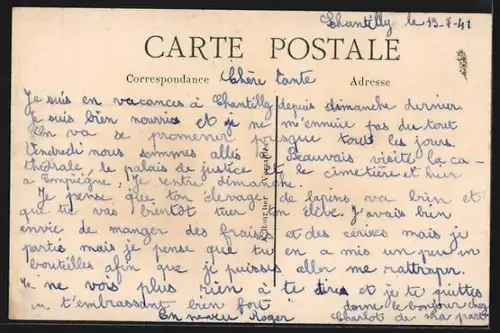 Chantilly le 13-7-41
CARTE POSTALE
Correspondance Chère tante Adresse
Je suis en vacances à Chantilly depuis dimanche dernier.
Je suis bien nourrie et je ne m'ennuie pas du tout
On va se promener presque tout les jours.
Vendredi nous sommes allés Beauvais visité la ca-
thédrale, le palais de justice et le cimetière et hier
a Compiègne. Je rentre dimanche.
Je pense que ton élevage de lapins va bien et
que tu vas bientôt tuer ton élève. J'avais bien
envie de manger des fraises et des cerises mais je
partis mais je pense que tu en a mis un peu in
bouteilles afin que je puisses aller me rattraper.
Je ne vois plus rien à te dire et je te quittes
en t'embrassant bien fort donne le bonjour chez
Ton neveu Roger Charlot de ma part